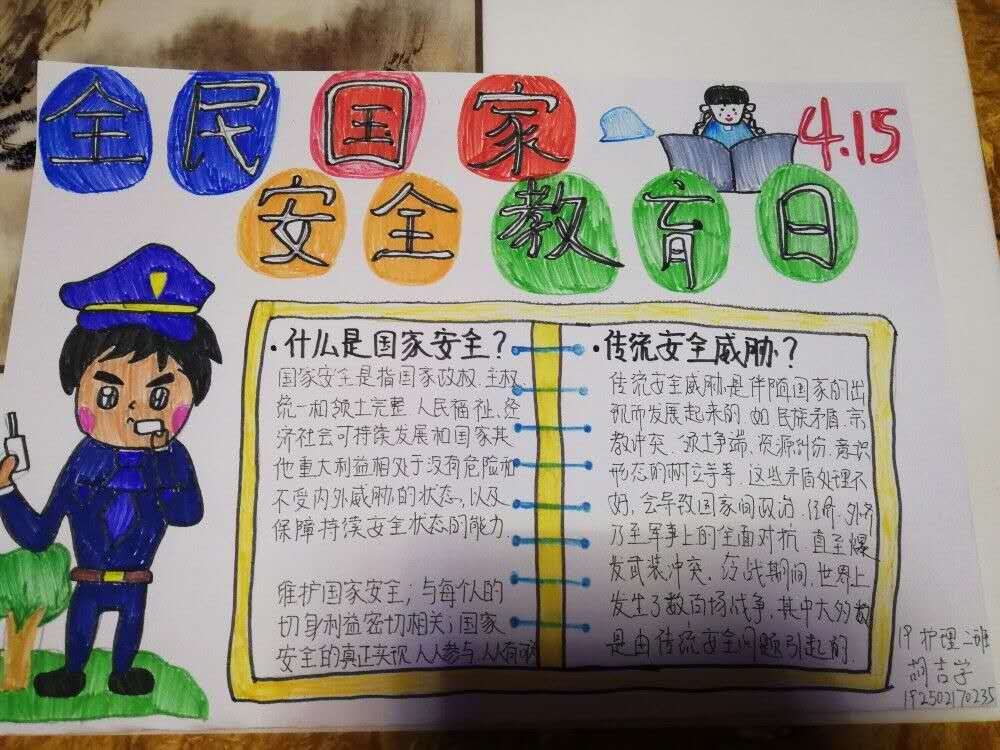 全民国家
4.15
安全教育日
·什么是国家安全?
国家安全是指国家政权、主权
统一和领土完整、人民福祉、经
济社会可持续发展和国家其
他重大利益相对于没有危险和
不受内外威胁的状态,以及
保障持续安全状态的能力.
维护国家安全;与每个人的
切身利益密切相关;国家
安全的真正实现人人参与、人人有责
·传统安全威胁?
传统安全威胁是伴随国家的出
现而发展起来的.如民族矛盾、宗
教冲突、领土争端、资源纠纷、意识
形态的树立等等.这些矛盾处理不
好,会导致国家间政治、经济、外交
乃至军事上的全面对抗.直至爆
发武装冲突.冷战期间,世界上
发生了数百场战争,其中大多数
是由传统安全问题引起的.
19护理二班
胡吉学
192502170235